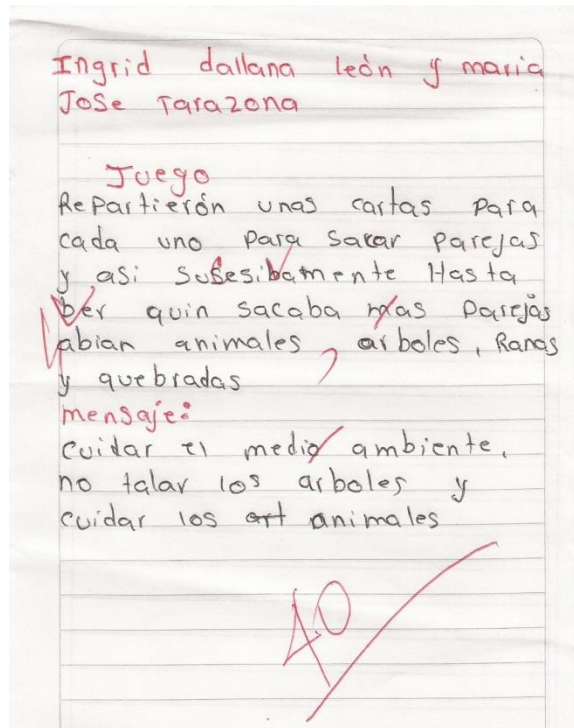 Ingrid dallana león y maria
Jose Tarazona
Juego
Repartierón unas cartas para
cada uno para sacar parejas
y asi susesibamente Hasta
ber quin sacaba mas parejas
abian animales, arboles, Ranas
y quebradas
mensaje:
cuidar el medio ambiente,
no talar los arboles y
cuidar los art animales
40